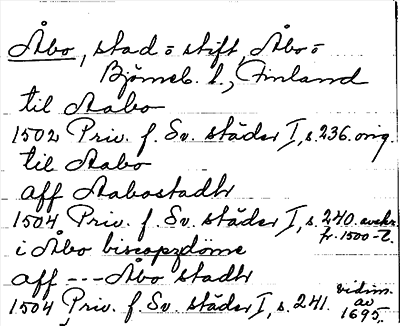 Åbo, stad = stift, Åbo =
Björneb. l., Finland
til Aabo
1502 Priv. f. Sv. städer I, s. 236. orig.
til Aabo
aff Aabostadh
1504 Priv. f. Sv. städer I, s. 240. avskr.
fr. 1500-t.
i Åbo biscopzdöme
aff --- Åbo stadh
1504 Priv. f. Sv. städer I, s. 241. vidim.
av
1695.